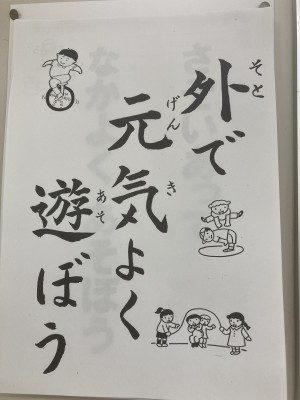 外で
元気よく
遊ぼう
そと
げん
き
あそ